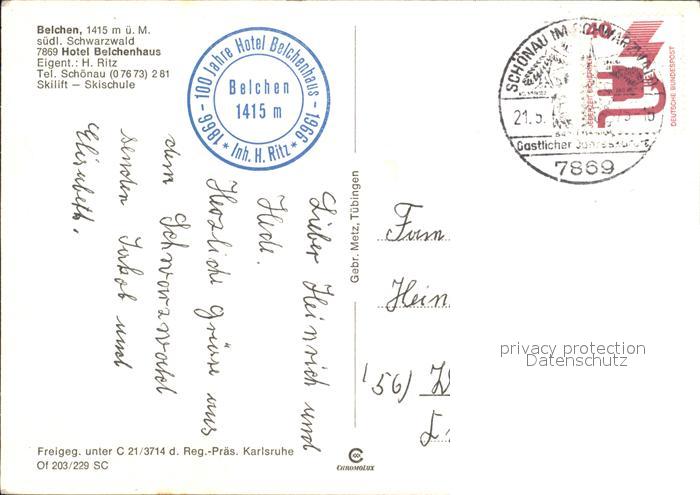 Belchen, 1415 m ü. M.
südl. Schwarzwald
7869 Hotel Belchenhaus
Eigent.: H. Ritz
Tel. Schönau (0 76 73) 2 81
Skilift – Skischule
1866 - 100 Jahre Hotel Belchenhaus - 1966
Belchen
1415 m
* Inh. H. Ritz *
SCHÖNAU IM SCHWARZWALD
21.5.
Gastlicher
7869
DEUTSCHE BUNDESPOST
Lieber Heinrich und
Hede.
Herzliche Grüsse aus
dem Schwarzwald
senden Jakob und
Elisabeth.
Gebr. Metz, Tübingen
Fam
Hein
(56)
privacy protection
Datenschutz
Freigeg. unter C 21/3714 d. Reg.-Präs. Karlsruhe
Of 203/229 SC
CHROMOLUX